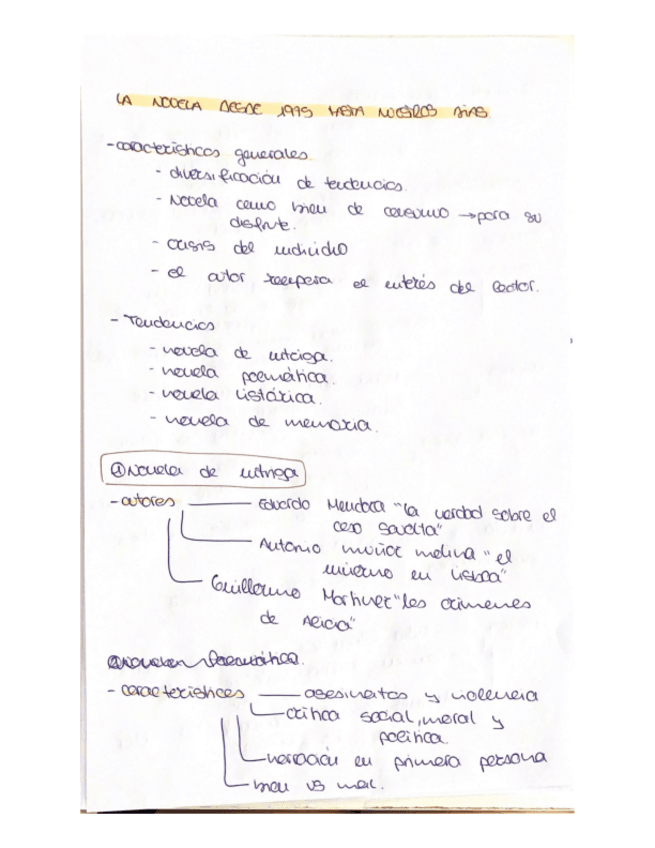 LA NOVELA DESDE 1975 HASTA NUESTROS DÍAS
- características generales
- diversificación de tendencias.
- Novela como bien de consumo → para su
disfrute.
- crisis del individuo
- el autor recupera el interés del lector.
- Tendencias
- novela de intriga.
- novela poemática.
- novela histórica.
- novela de memoria.
① Novela de intriga
- autores — Eduardo Mendoza "la verdad sobre el
caso Savolta"
Antonio muñoz molina "el
invierno en Lisboa"
Guillermo Martínez "los crímenes
de Alicia"
② Novela Poemática.
- características — asesinatos y violencia
crítica social, moral y
política.
narración en primera persona
bien vs mal.